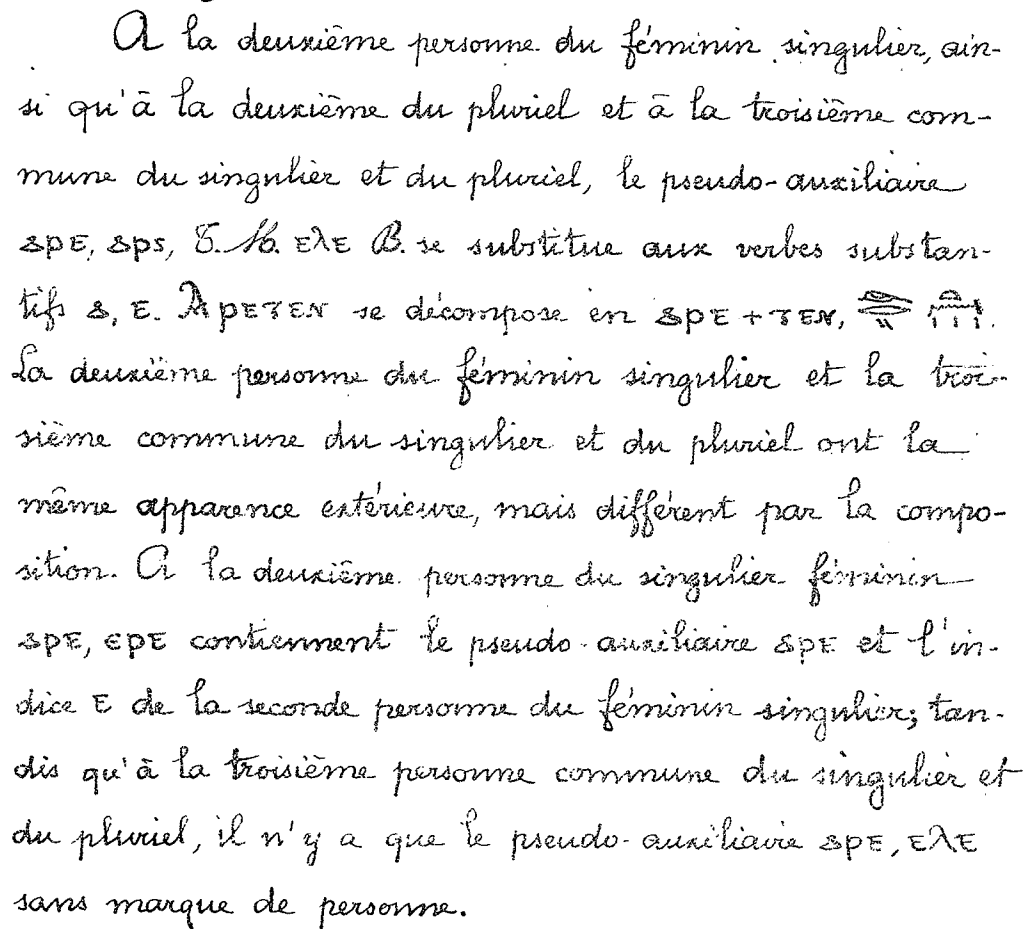 A la deuxième personne du féminin singulier, ain-
si qu'à la deuxième du pluriel et à la troisième com-
mune du singulier et du pluriel, le pseudo-auxiliaire
ⲁⲣⲉ, ⲁⲣⲥ, T. M. ⲉⲗⲉ B. se substitue aux verbes substan-
tifs ⲁ, ⲉ. Ⲁⲣⲉⲧⲉⲛ se décompose en ⲁⲣⲉ + ⲧⲉⲛ,
La deuxième personne du féminin singulier et la troi-
sième commune du singulier et du pluriel ont la
même apparence extérieure, mais différent par la compo-
sition. A la deuxième personne du singulier féminin
ⲁⲣⲉ, ⲉⲣⲉ contiennent le pseudo-auxiliaire ⲁⲣⲉ et l'in-
dice ⲉ de la seconde personne du féminin singulier; tan-
dis qu'à la troisième personne commune du singulier et
du pluriel, il n'y a que le pseudo-auxiliaire ⲁⲣⲉ, ⲉⲗⲉ
sans marque de personne.